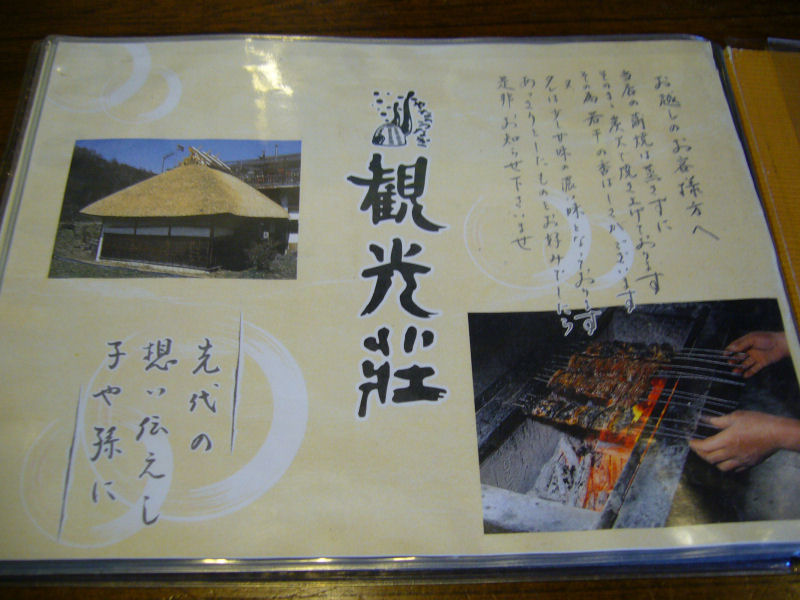 お越しのお客様方へ
当店の蒲焼は蒸さずに
そのまま炭火で焼き上げております
その為若干の香ばしさがございます
又
タレは少々甘味の濃い味となっております
あっさりとしたものをお好みでしたら
是非お知らせ下さいませ
観光荘
先代の
想い伝えし
子や孫に